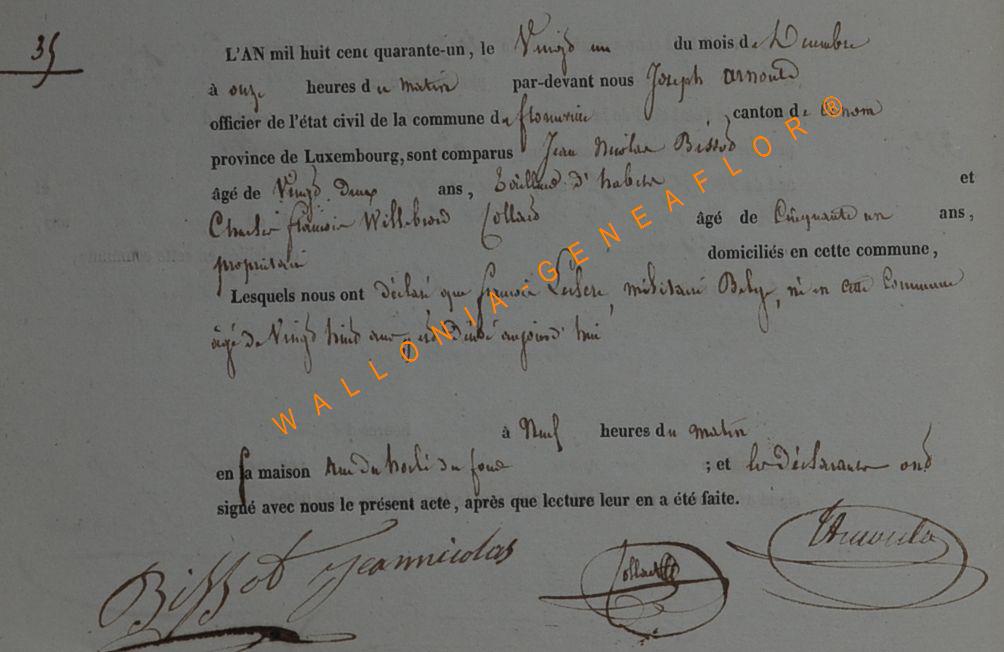 35
L'AN mil huit cent quarante-un, le Vingt un du mois de Decembre
à onze heures du matin par-devant nous Joseph Arnould
officier de l'état civil de la commune de florenville canton de
province de Luxembourg, sont comparus Jean Nicolas Bissot
âgé de Vingt Deux ans, tailleur d'habits et
Charles françois Willebrord Collard âgé de Cinquante un ans,
propriétaire domiciliés en cette commune,
Lesquels nous ont déclaré que françois militaire Belge, né en cette Commune
âgé de Vingt huit ans, est décédé aujourd'hui
à Neuf heures du matin
en sa maison Rue du ; et les déclarants ont
signé avec nous le présent acte, après que lecture leur en a été faite.
Bissot Jeannicolas Collard Arnould
WALLONIA-GENEAFLOR ®